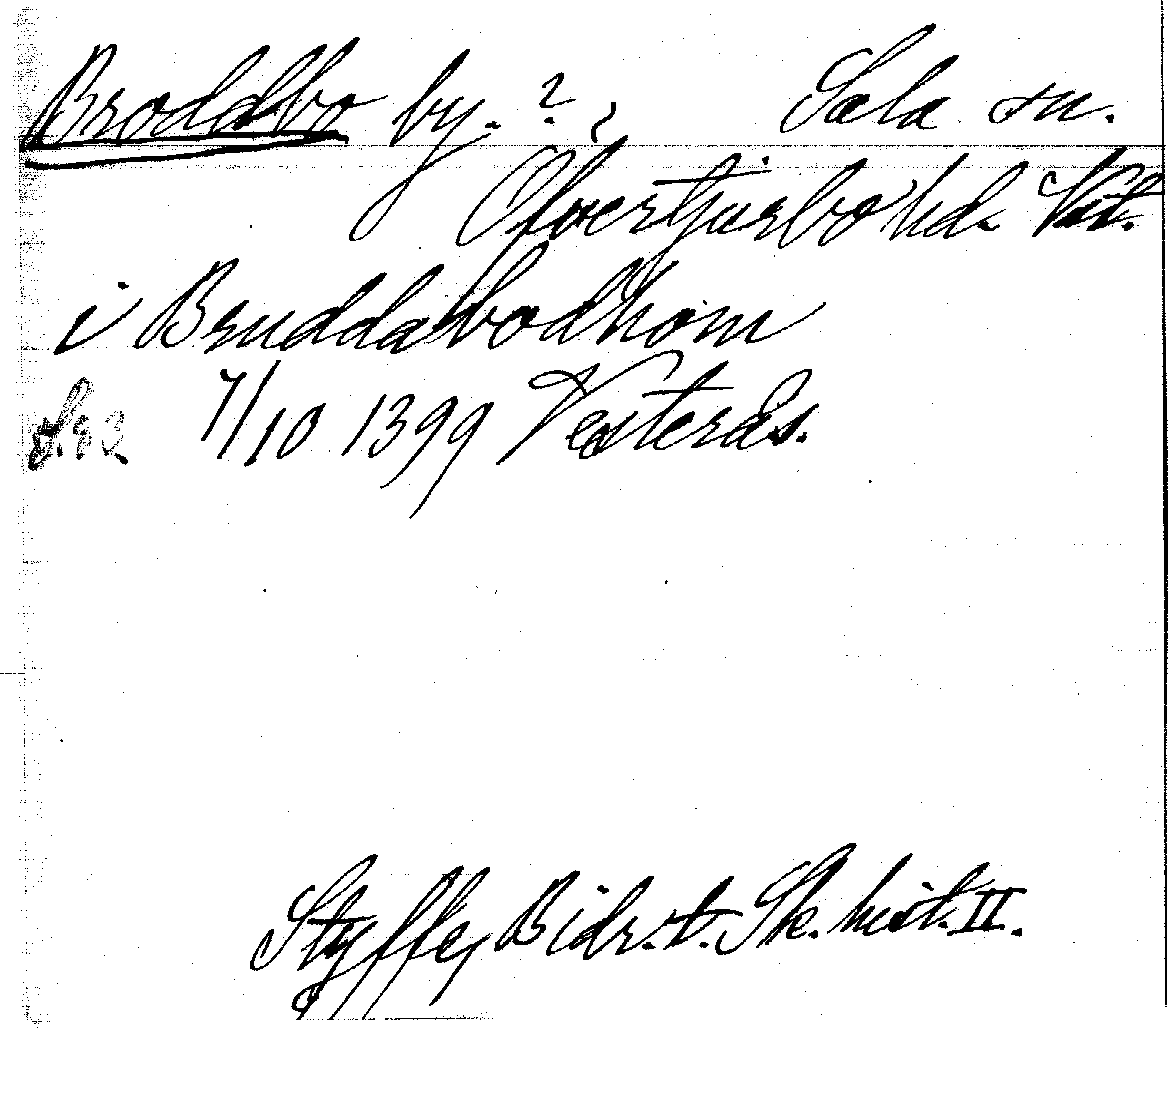 Broddbo by. ?, Sala sn.
Öfvertjurbo hd. Vst.
i Bruddabodhom
s. 83. 7/10 1399 Vesterås.
Styffe, Bidr. t. Sk. hist. II.